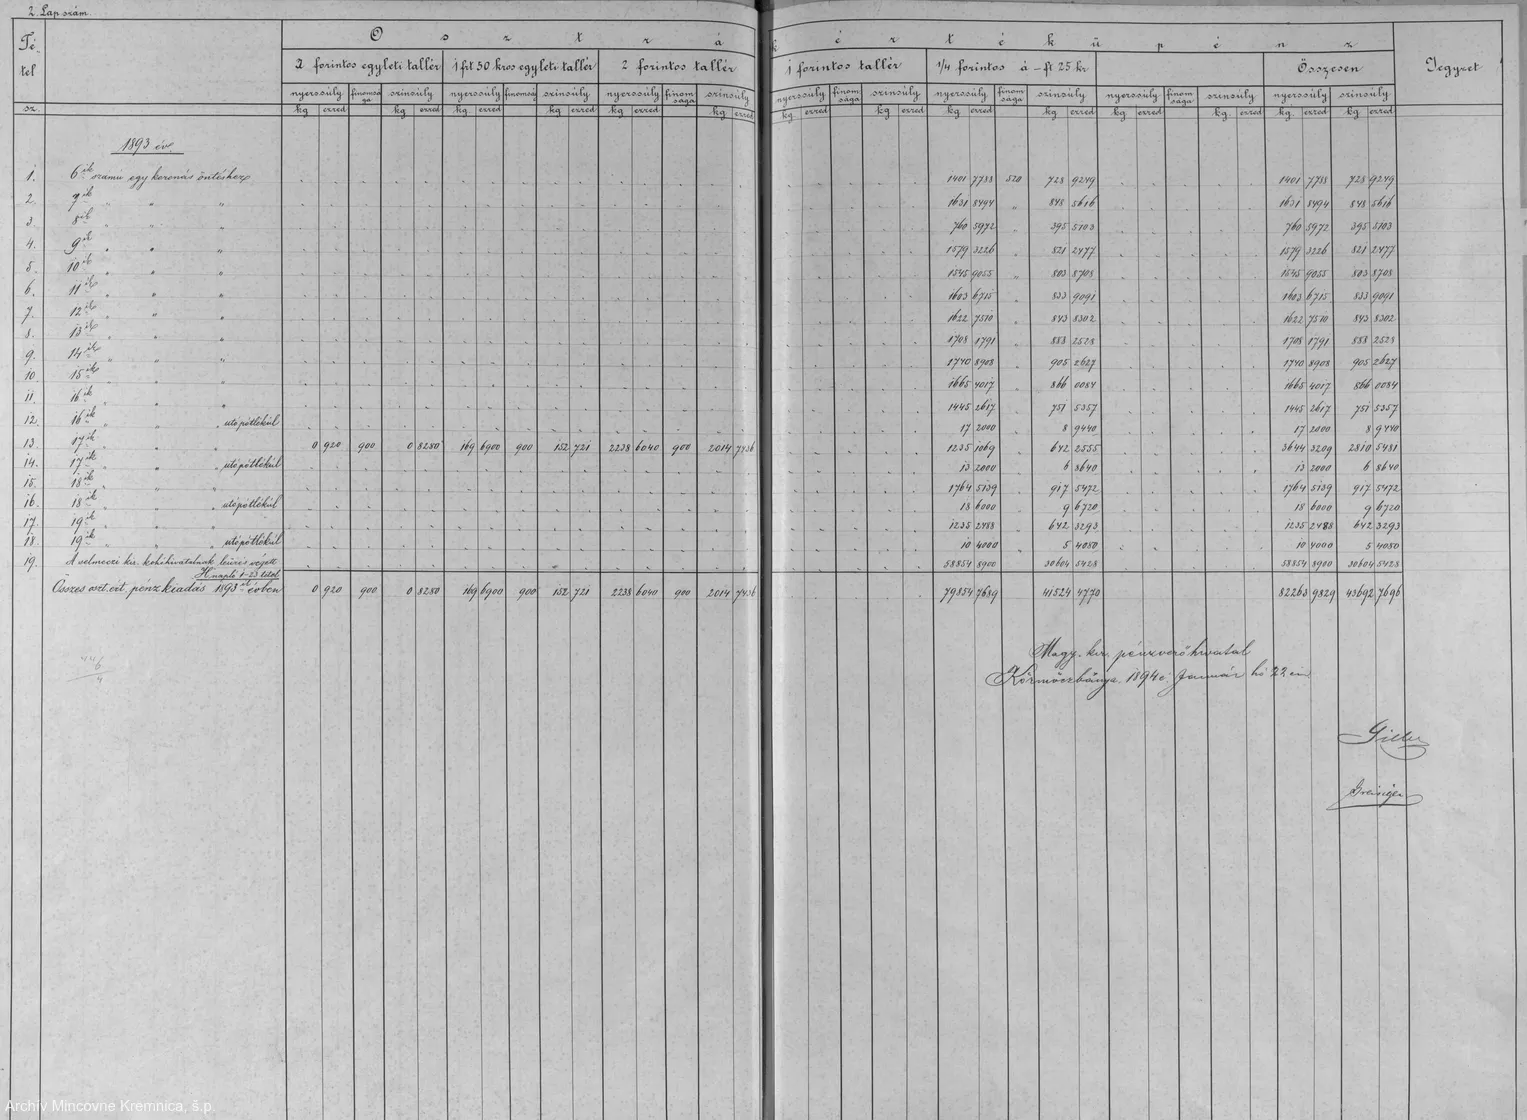 2. Lap szám.
Té-
tel
sz.
O s z t r á k é r t é k ü p é n z
Jegyzet
2 forintos egyleti tallér 1 frt 50 kros egyleti tallér 2 forintos tallér 1 forintos tallér 1/4 forintos á – ft 25 kr Összesen
nyerssúly finomsága szinsúly nyerssúly finomság szinsúly nyerssúly finomsága szinsúly nyerssúly finomsága szinsúly nyerssúly finomsága szinsúly nyerssúly finomsága szinsúly nyerssúly szinsúly
kg ezred kg ezred kg. ezred kg ezred kg ezred kg ezred kg ezred kg ezred kg ezred kg ezred kg. ezred kg. ezred kg. ezred kg ezred
1893 év.
1. 6ik számú egy koronás öntéshez 1401 7788 520 728 9249 1401 7788 728 9249
2. 7ik „ „ „ 1631 8494 „ 848 5616 1631 8494 848 5616
3. 8ik „ „ „ 760 5972 „ 395 5103 760 5972 395 5103
4. 9ik „ „ „ 1579 3226 „ 821 2477 1579 3226 821 2477
5. 10ik „ „ „ 1545 9055 „ 803 8708 1545 9055 803 8708
6. 11ik „ „ „ 1603 6715 „ 833 9091 1603 6715 833 9091
7. 12ik „ „ „ 1622 7510 „ 843 8302 1622 7510 843 8302
8. 13ik „ „ „ 1708 1791 „ 888 2528 1708 1791 888 2528
9. 14ik „ „ „ 1740 8908 „ 905 2627 1740 8908 905 2627
10. 15ik „ „ „ 1665 4017 „ 866 0084 1665 4017 866 0084
11. 16ik „ „ „ 1445 2617 „ 751 5357 1445 2617 751 5357
12. 16ik „ „ „ utópótlékúl 17 2000 „ 8 9440 17 2000 8 9440
13. 17ik „ „ „ 0 920 900 0 8280 169 6900 900 152 721 2238 6040 900 2014 7436 1235 1069 „ 642 2555 3644 3209 2810 5481
14. 17ik „ „ „ utópótlékúl 13 2000 „ 6 8640 13 2000 6 8640
15. 18ik „ „ „ 1764 5139 „ 917 5472 1764 5139 917 5472
16. 18ik „ „ „ utópótlékúl 18 6000 „ 9 6720 18 6000 9 6720
17. 19ik „ „ „ 1235 2488 „ 642 3293 1235 2488 642 3293
18. 19ik „ „ „ utópótlékúl 10 4000 „ 5 4080 10 4000 5 4080
19. A selmeczi kir. kohóhivatalnak lúzés végett 58854 8900 30604 5428 58854 8900 30604 5428
H napló 1–23 tétel
Összes oszt. ért. pénz kiadás 1893ik évben 0 920 900 0 8280 169 6900 900 152 721 2238 6040 900 2014 7436 79854 7689 41524 4770 82263 9829 43692 7696
Magy. kir. pénzverőhivatal
Körmöczbánya 1894 é. Január hó 22 én
Archív Mincovne Kremnica, š.p.